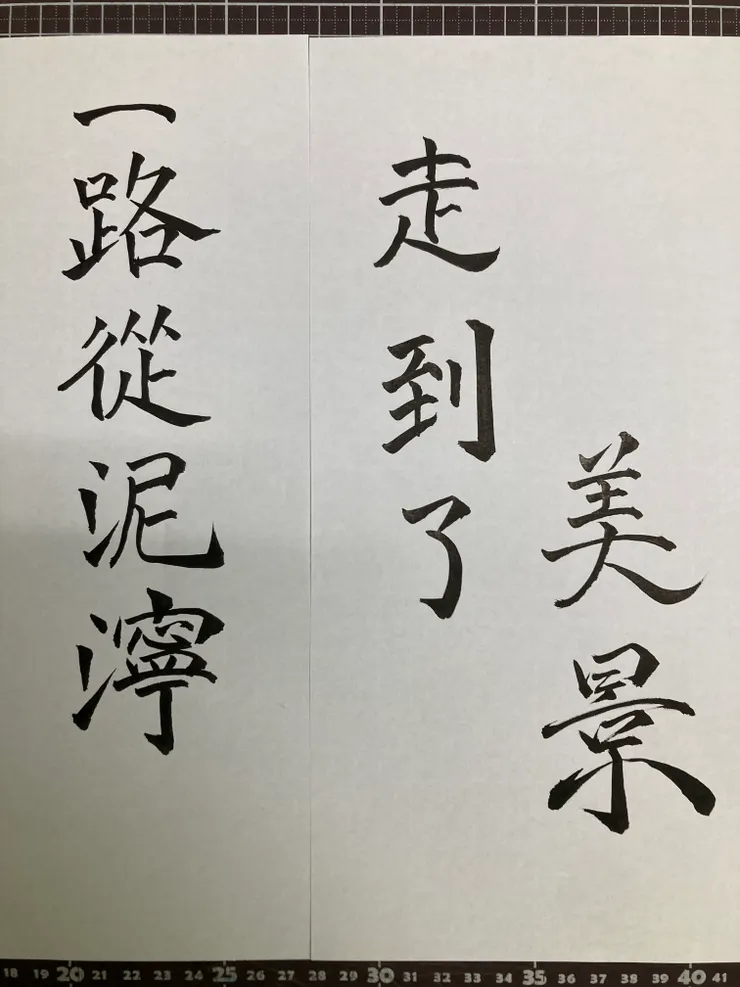 一路從泥濘
走到了
美景
18 19 20 21 22 23 24 25 26 27 28 29 30 31 32 33 34 35 36 37 38 39 40 41